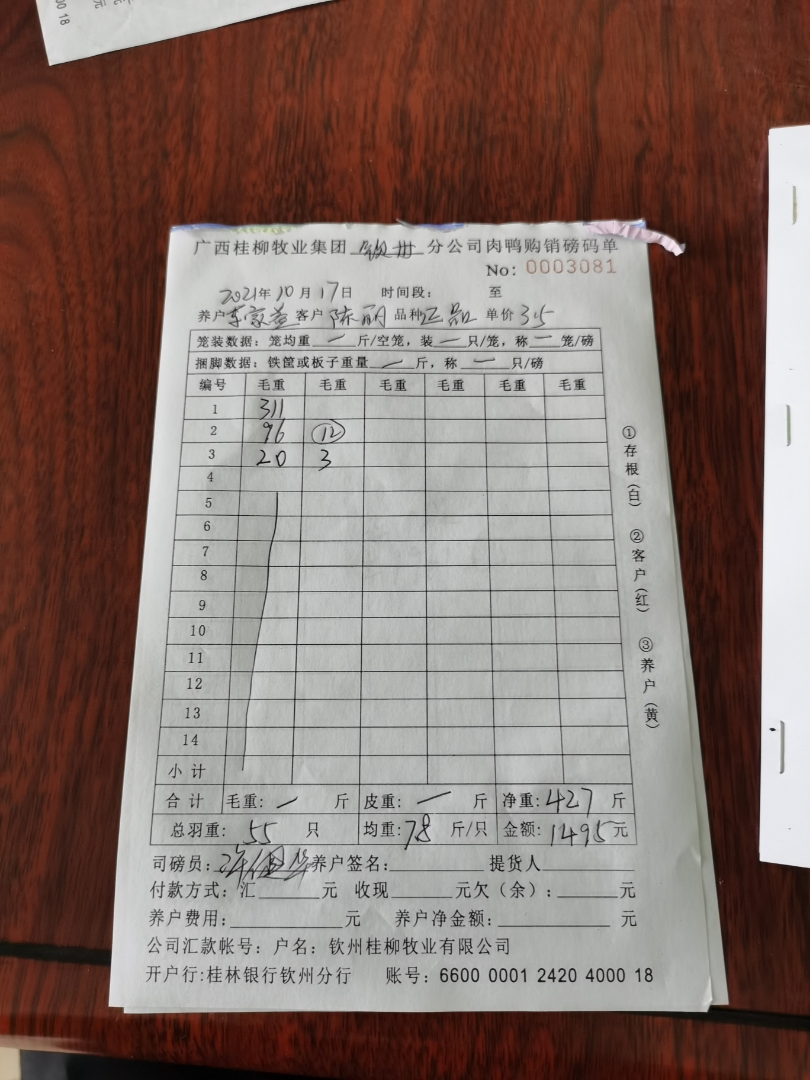 元
00 18
广西桂柳牧业集团 钦州 分公司肉鸭购销磅码单
No: 0003081
2021年10月17日 时间段: 至
养户 客户 陈丽 品种正品 单价 3.5
笼装数据: 笼均重 一 斤/空笼, 装 一 只/笼, 称 一 笼/磅
捆脚数据: 铁筐或板子重量 一 斤, 称 一 只/磅
编号 毛重 毛重 毛重 毛重 毛重 毛重
1 311
2 96 12
3 20 3
4
5
6
7
8
9
10
11
12
13
14
小计
合计 毛重: 一 斤 皮重: 一 斤 净重: 427 斤
总羽重: 55 只 均重: 78 斤/只 金额: 1495元
司磅员: 养户签名: 提货人
付款方式: 汇 元 收现 元欠(余): 元
养户费用: 元 养户净金额: 元
公司汇款帐号: 户名: 钦州桂柳牧业有限公司
开户行:桂林银行钦州分行 账号: 6600 0001 2420 4000 18
①存根(白) ②客户(红) ③养户(黄)